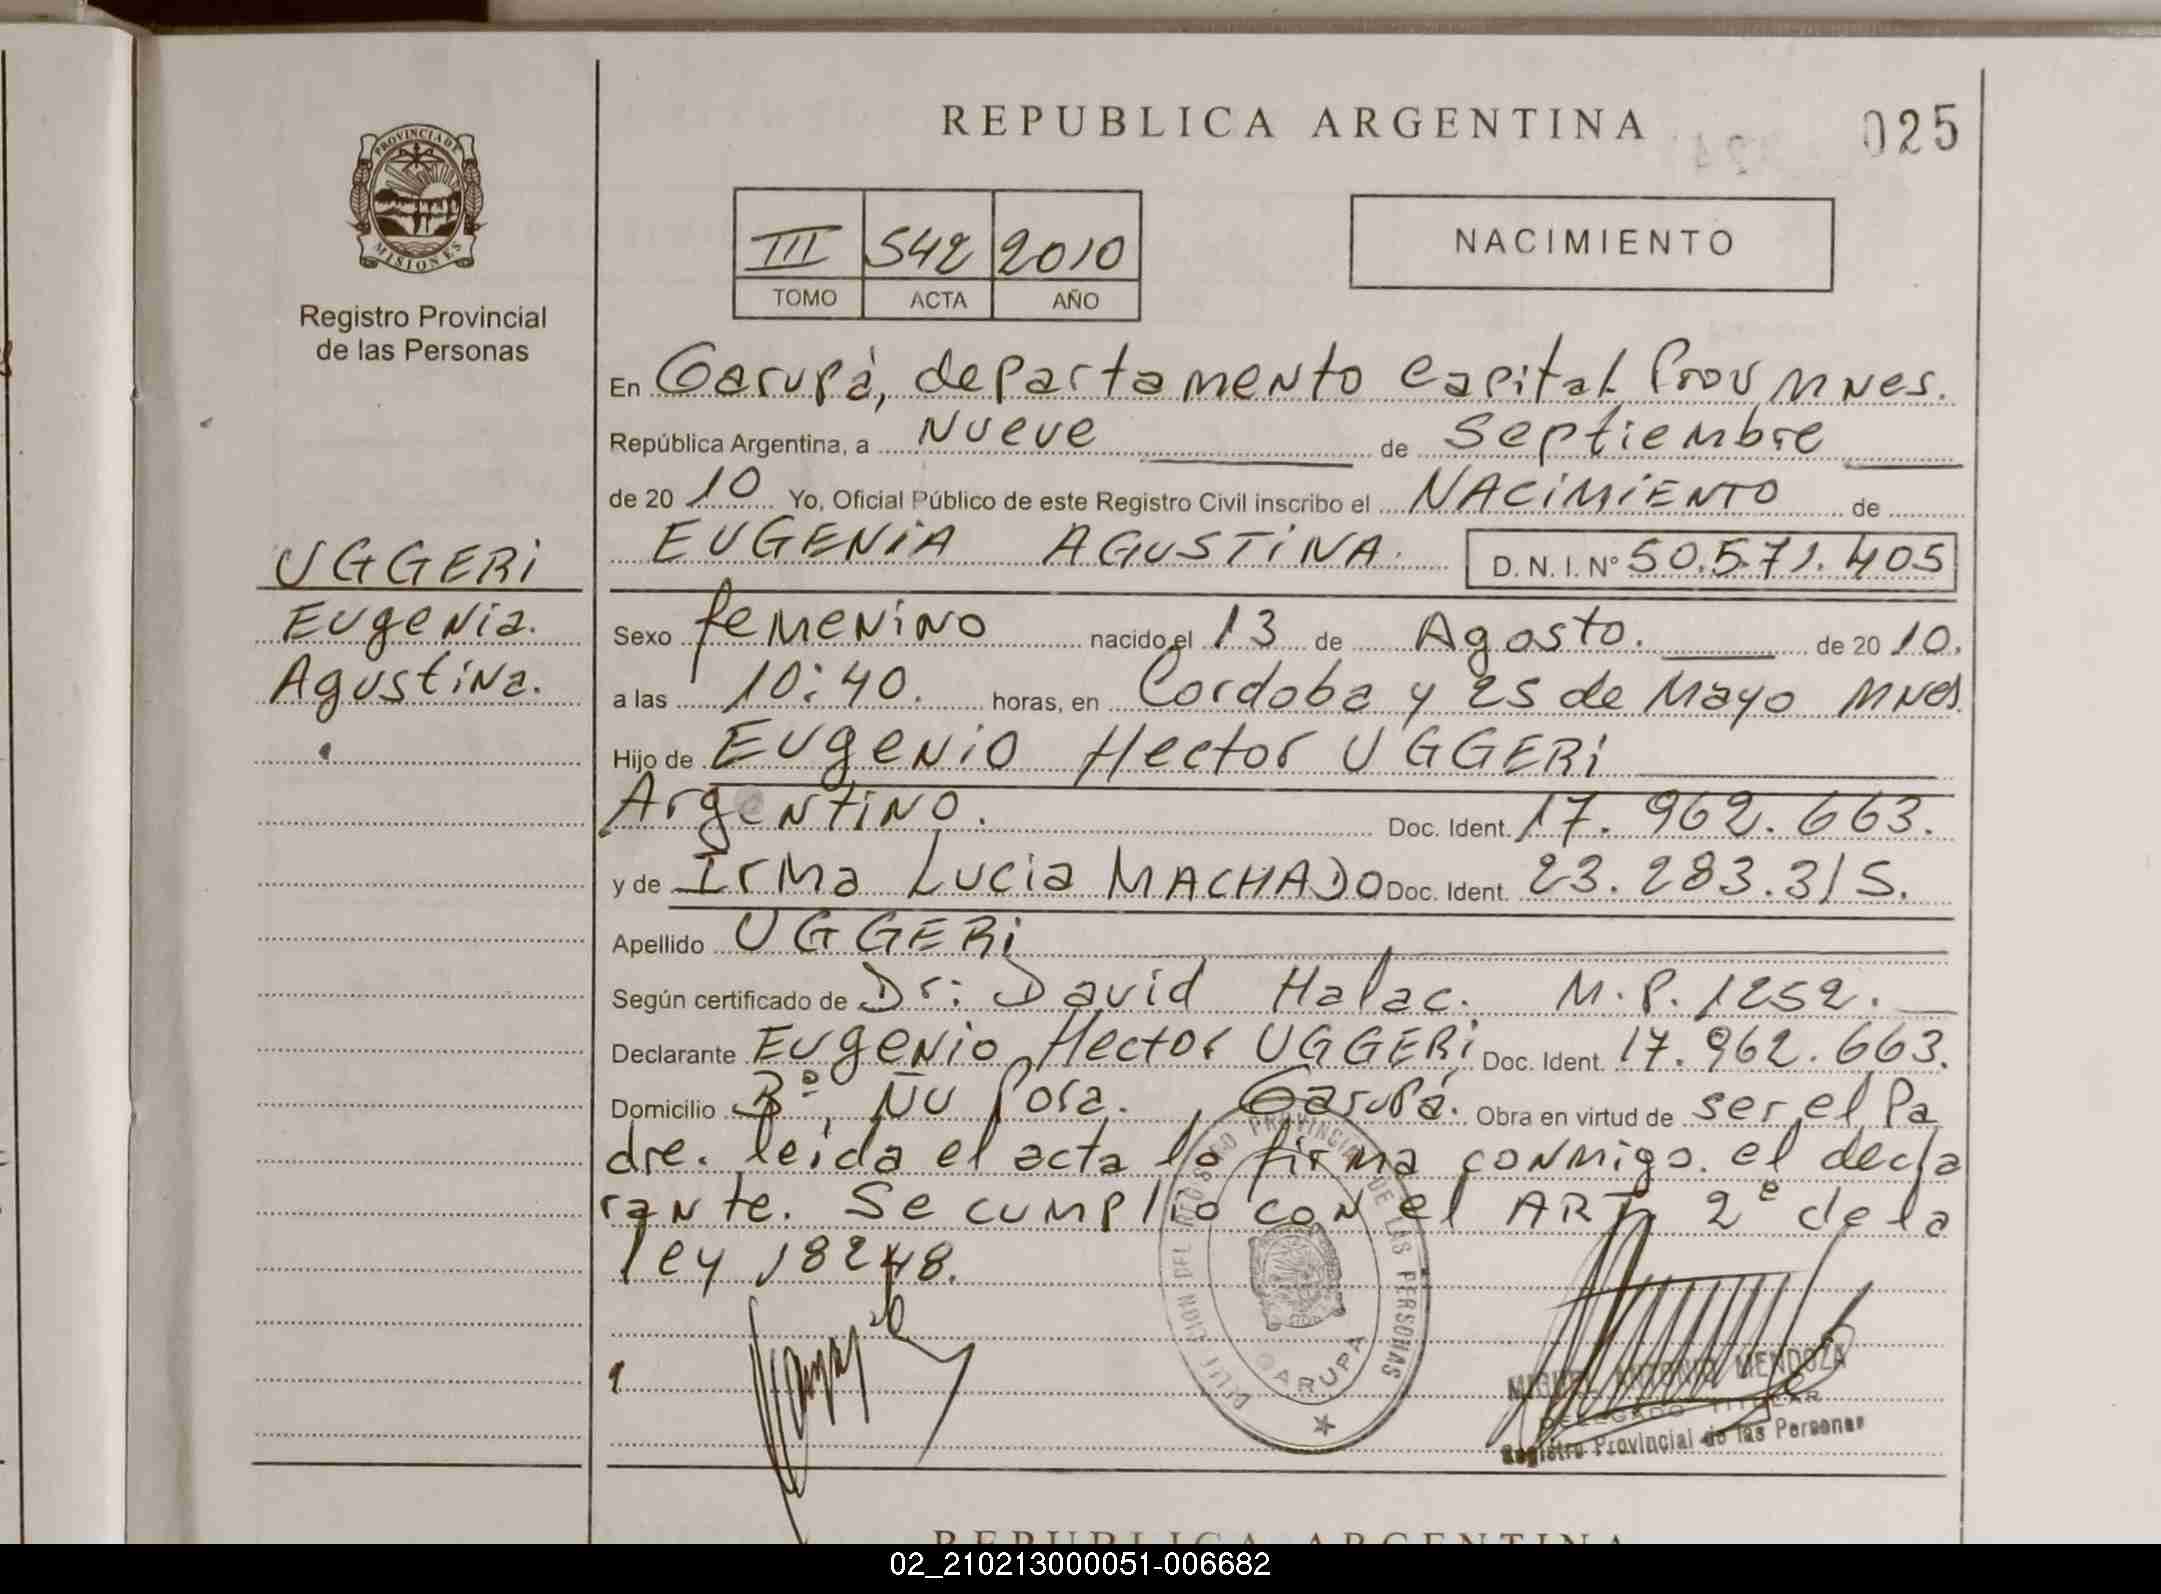 REPUBLICA ARGENTINA
025
PROVINCIA DE
MISIONES
Registro Provincial
de las Personas
III 542 2010
TOMO ACTA AÑO
NACIMIENTO
En Garupá, departamento Capital Prov Mnes.
República Argentina, a Nueve de Septiembre
de 20 10 Yo, Oficial Público de este Registro Civil inscribo el NACIMIENTO de
EUGENIA AGUSTINA. D. N. I. N° 50.571.405
UGGERI
Eugenia.
Agustina.
Sexo femenino nacido el 13 de Agosto. de 20 10.
a las 10:40. horas, en Cordoba y 25 de Mayo Mnes
Hijo de Eugenio Hector UGGERI
Argentino. Doc. Ident. 17.962.663.
y de Irma Lucia MACHADO Doc. Ident. 23.283.315.
Apellido UGGERI
Según certificado de Dr: David Halac. M.P. 1252.
Declarante Eugenio Hector UGGERI Doc. Ident. 17.962.663.
Domicilio Bº. Ñu Pora. Garupá. Obra en virtud de ser el Pa
dre. leida el acta la firma conmigo. el decla
rante. Se cumplio con el ART. 2º de la
ley 18248.
DELEGACION DEL REGISTRO PROVINCIAL DE LAS PERSONAS
GARUPA
MIGUEL ANTONIO MENDOZA
DELEGADO TITULAR
Registro Provincial de las Personas
REPUBLICA ARGENTINA
02_210213000051-006682